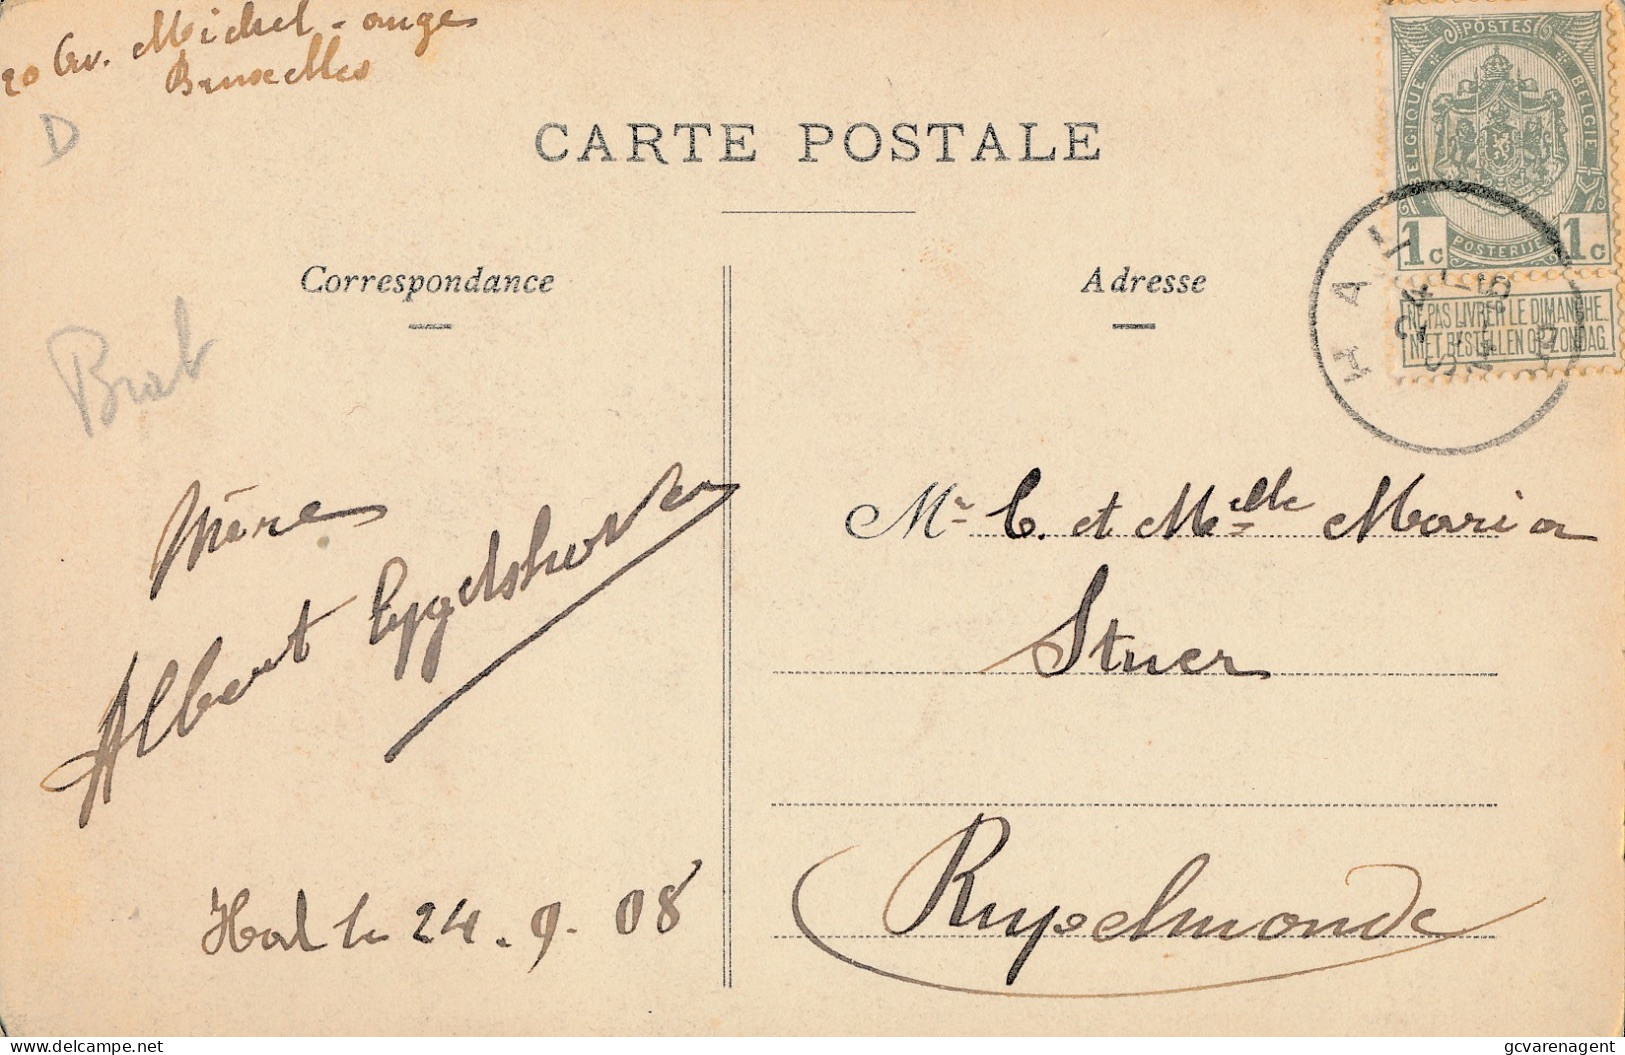 20 Av. Michel-ange
Bruxelles
D
CARTE POSTALE
POSTES
BELGIQUE
BELGIE
1c
POSTERIJEN
1c
NE PAS LIVRER LE DIMANCHE.
NIET BESTELLEN OP ZONDAG.
HAL
24
Correspondance
Adresse
Brab
Mère
Albert Eygelshoven
Mr C. et Melle Maria
Stuer
Rupelmonde
Hal le 24.9.08
www.delcampe.net
gcvarenagent